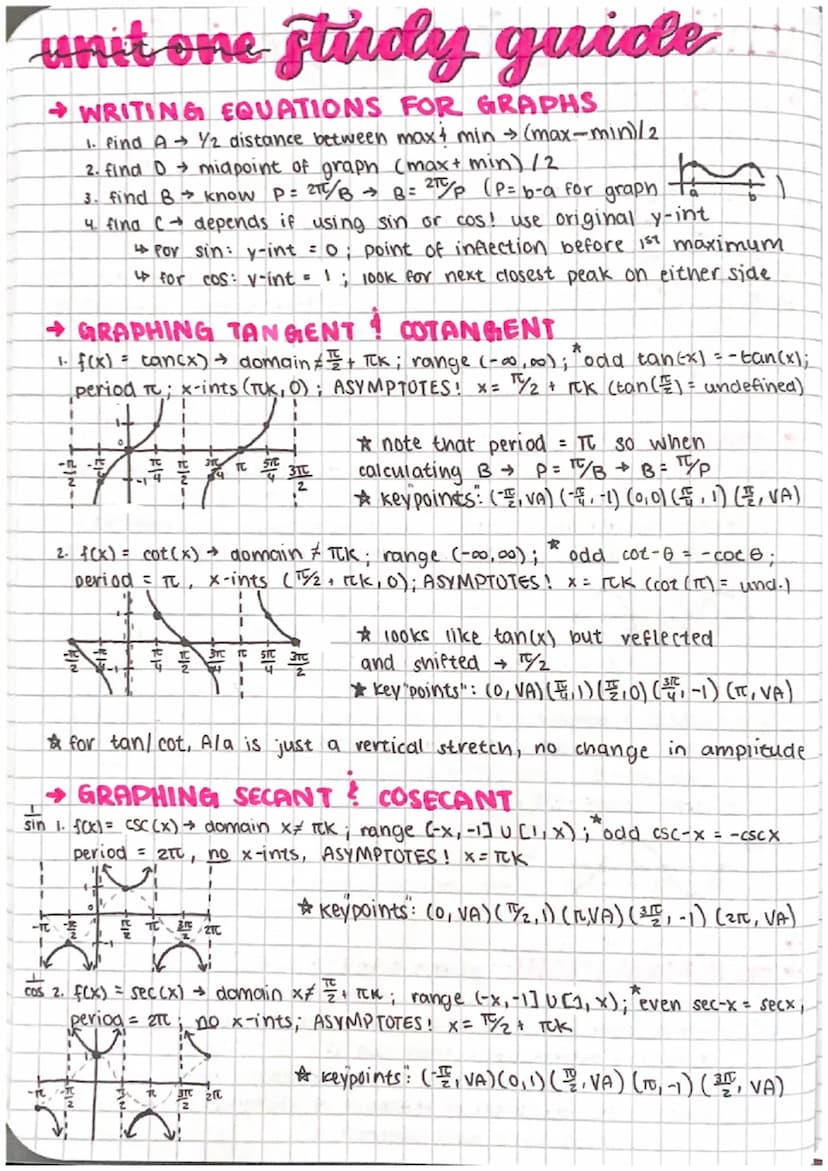 unit one study guide
→ WRITING EQUATIONS FOR GRAPHS
1. find A → 1/2 distance between max & min → (max-min)/2
2. find D → midpoint of graph (max+min)/2
3. find B → know P = 2π/B → B = 2π/P (P=b-a for graph a b )
4. find C → depends if using sin or cos! use original y-int
↳ for sin: y-int = 0; point of inflection before 1st maximum
↳ for cos: y-int = 1; look for next closest peak on either side
→ GRAPHING TANGENT & COTANGENT
1. f(x) = tan(x) → domain ≠ π/2 + πK; range (-∞,∞); *odd tan(-x) = -tan(x);
period π; x-ints (πk, 0); ASYMPTOTES! x = π/2 + πK (tan(π/2) = undefined)
1 0 -1
-π/2 -π/4 π/4 π/2 3π/4 π 5π/4 3π/2
★ note that period = π so when
calculating B → P = π/B → B = π/P
★ key"points": (-π/2, VA) (-π/4, -1) (0,0) (π/4, 1) (π/2, VA)
2. f(x) = cot(x) → domain ≠ πK; range (-∞,∞); *odd cot-θ = -cotθ;
period = π, x-ints (π/2 + πk, 0); ASYMPTOTES! x = πK (cot(π) = und.)
-π/2 -π/4 -1 π/4 π/2 3π/4 π 5π/4 3π/2
★ looks like tan(x) but reflected
and shifted → π/2
★ key"points": (0, VA) (π/4, 1) (π/2, 0) (3π/4, -1) (π, VA)
★ for tan/cot, A/a is just a vertical stretch, no change in amplitude
→ GRAPHING SECANT & COSECANT
1/sin 1. f(x) = csc(x) → domain x≠ πK; range (-x, -1] ∪ [1, x); *odd csc-x = -cscx
period = 2π, no x-ints, ASYMPTOTES! x = πK
1 0 -1
-π -π/2 π/2 π 3π/2 2π
★ key"points": (0, VA) (π/2, 1) (π, VA) (3π/2, -1) (2π, VA)
1/cos 2. f(x) = sec(x) → domain x≠ π/2 + πK; range (-x, -1] ∪ [1, x); *even sec-x = secx,
period = 2π; no x-ints; ASYMPTOTES! x = π/2 + πK
-π -π/2 π/2 π 3π/2 2π
★ key"points": (-π/2, VA) (0, 1) (π/2, VA) (π, -1) (3π/2, VA)